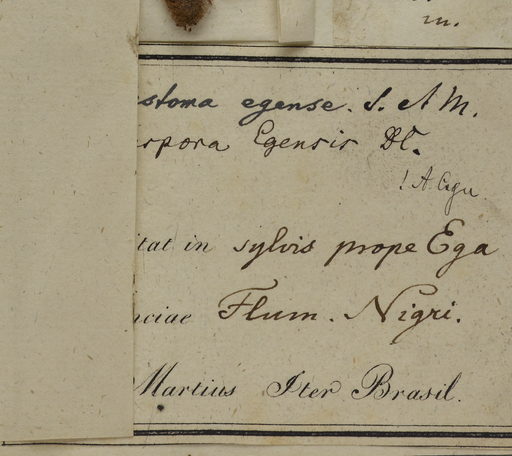 m.
stoma egense. S. A M.
rpora Egensis DC.
! A. Cogn
itat in sylvis prope Ega
nciae Flum. Nigri.
Martius Iter Brasil.